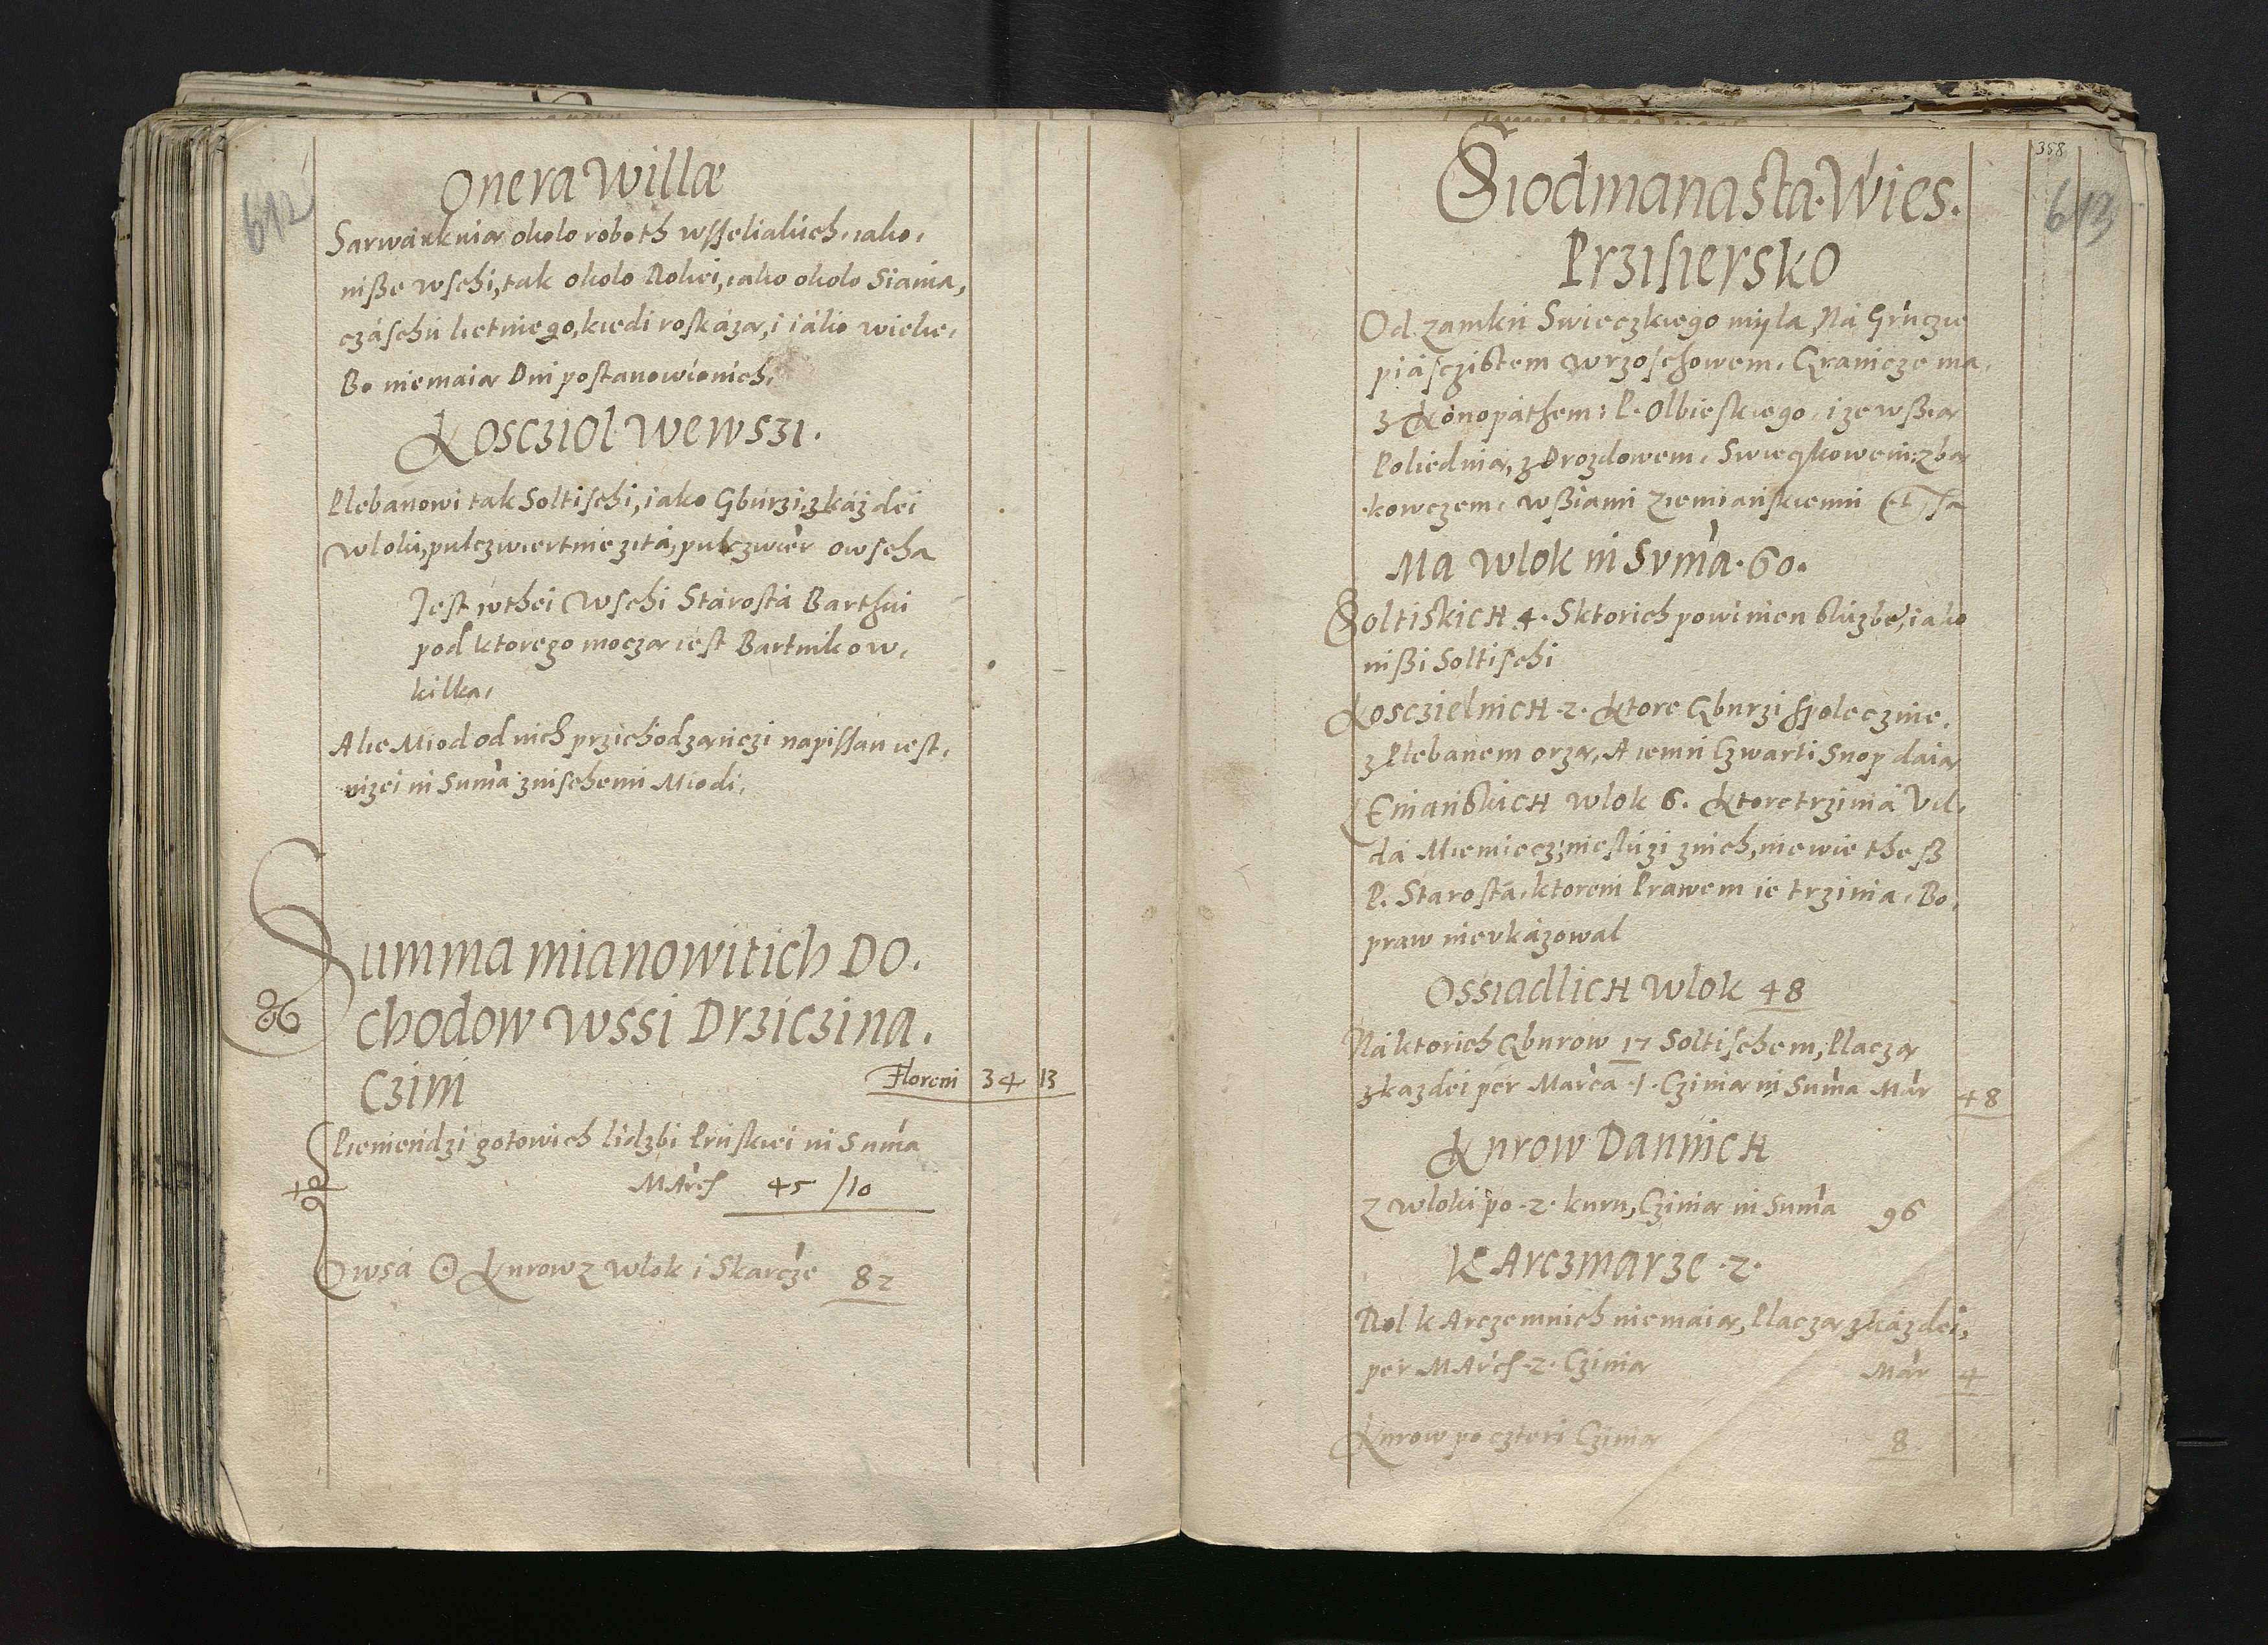 612
Onera Willæ
Sarwarkuia okolo roboth wsseliakich, iako,
nisße wschi, tak okolo Rolei, iako okolo Siania,
czáschu lietniego, kiedi roskáza, i iáko wiele,
Bo niemaia Dni postanowionich,
Koscziol wewszi.
Plebanowi tak Soltischi, iako Gburzi, zkázdei
wloki, pulczwiertnie zitá, pulczwier owscha
Jest wthei Wschi Stárosta Barthni
pod ktorego mocza iest Bartnikow,
kilka,
Ale Miod od nich przichodzaniczi napissan iest,
nizei in Suma z inschemi Miodi,
Summa mianowitich Do.
chodow wssi Drziczina.
Czini Floreni 34 13
Pieniendzi gotowich lidzbi Pruskiei in Suma
Marcs 45 /10
Owsá Kurow z wlok i Skarcze 82
358
613
Siodmanasta. Wies.
Przisiersko
Od zamku Swieczkiego myla Ná Grunczie
piásczistem wrzoschowem. Granicze ma,
z Konopáthem: P. Olbieskiego, i ze wßia
Poliednia, z Drozdowem, Swiegkowem: zba
kowczem, wßiami Ziemiańskiemi
Ma Wlok in Suma. 60.
Soltiskich 4. Sktorich powinien sluzbe, iako
nißi Soltischi
Kosczielnich 2. Ktore Gburzi spoleczine,
z Plebanem orza, A iemu Czwarti Snop daia
Zemańskich wlok 6. Ktore trzima Vil,
dá Niemiecz, nie sluzi znich, niewie theß
P. Starosta, ktorem Prawem ie trzima, Bo,
praw nievkázowal
Ossiadlich Wlok 48
Ná ktorich Gburow 17 Soltischem, Placza
zkazdei per Marca .1. Czinia in Suma Mar 48
Kurow Dannich
Z wloki po .2. kuru, Czinia in Suma 96
Karczmarze .2.
Rol karczemnich niemaia, Placza zkázdei,
per Marcs .2. Czinia Mar 4
Kurow po czteri Czinia 8